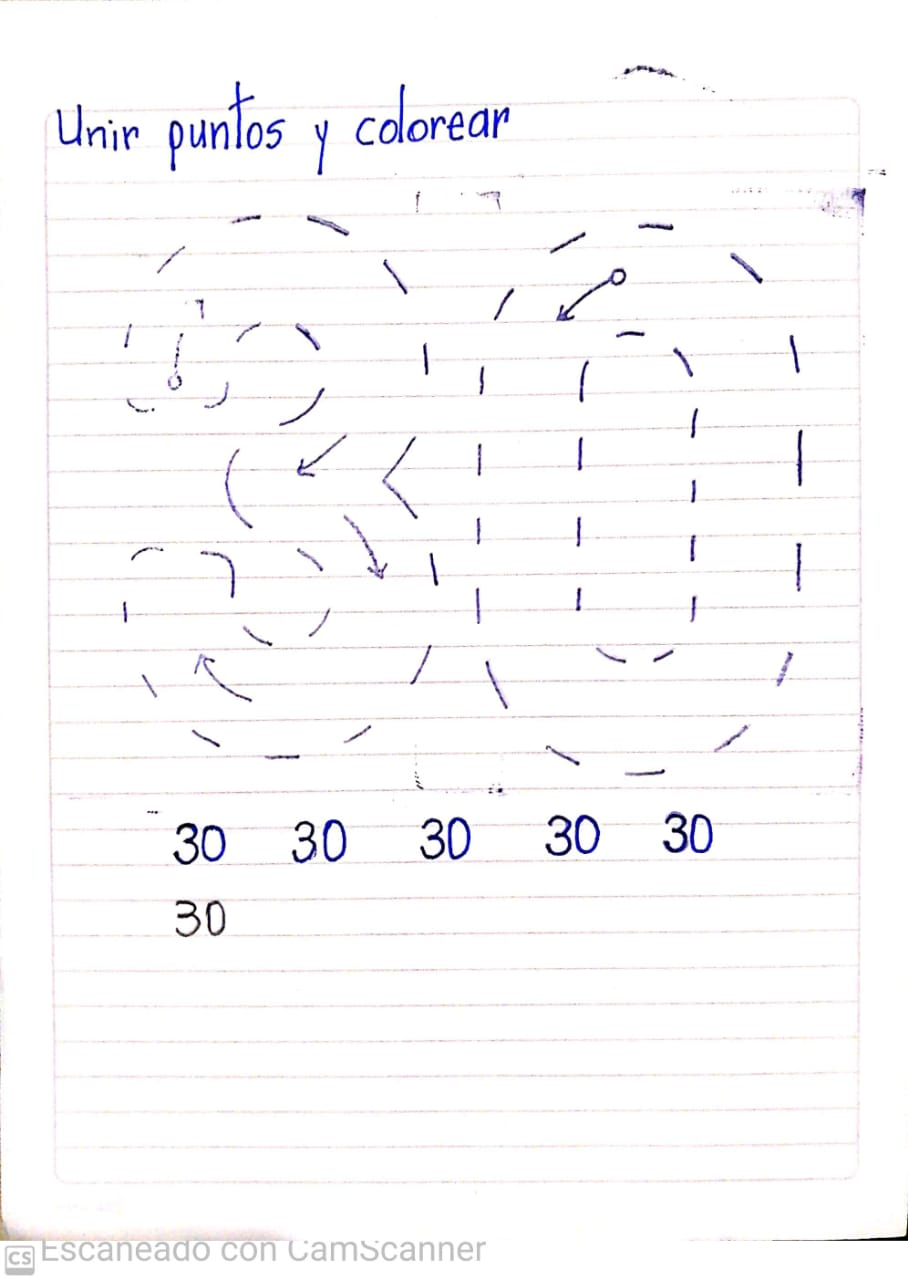 Unir puntos y colorear
30
30 30 30 30 30
30
CS Escaneado con CamScanner